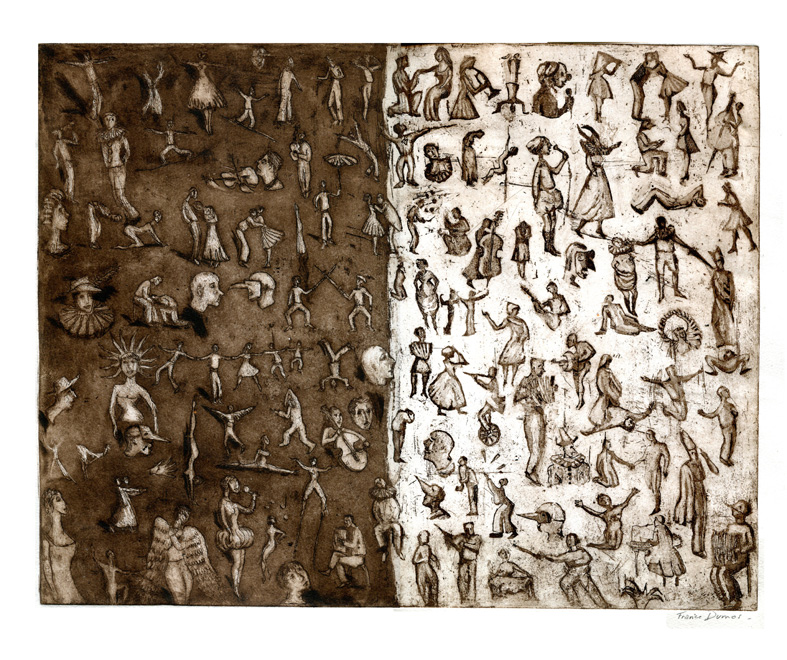 France Dumas